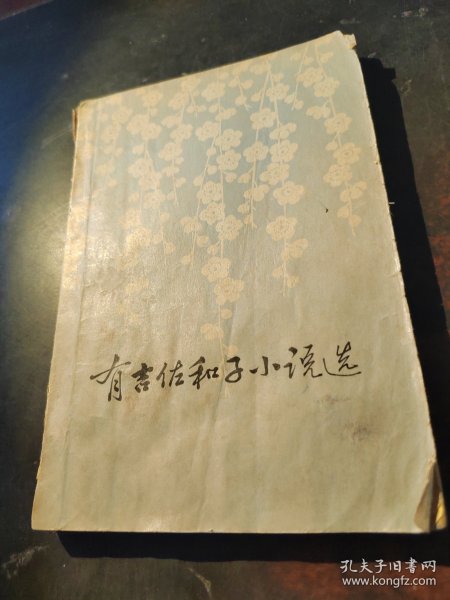 有吉佐和子小说选
孔夫子旧书网
www.kongfz.com